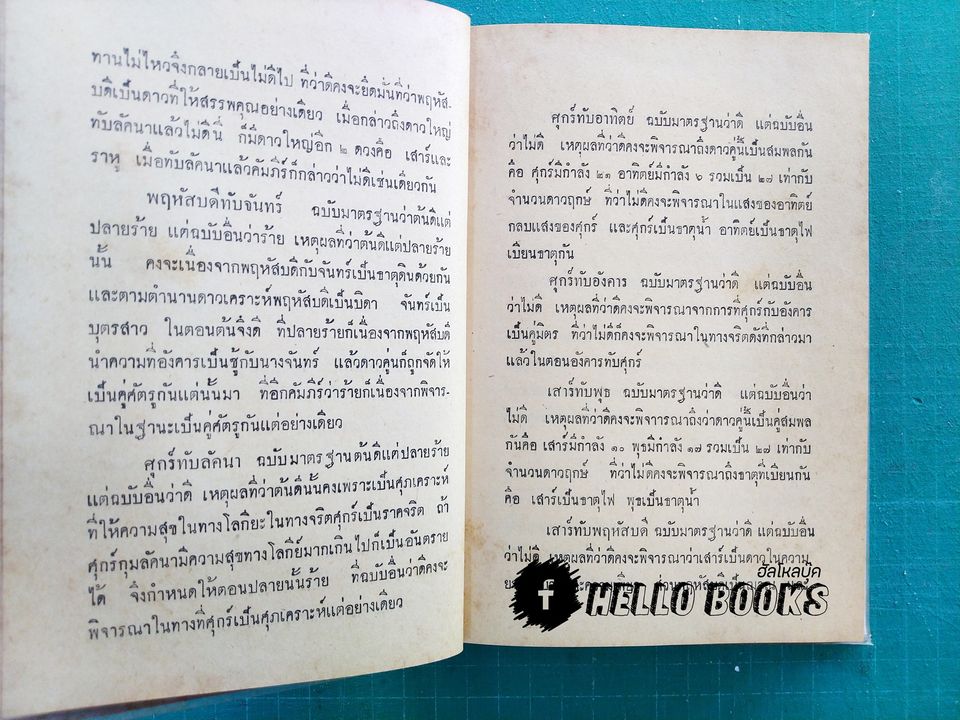 ทานไม่ไหวจึงกลายเป็นไม่ดีไป ที่ว่าดีคงจะยึดมั่นที่ว่าพฤหัส-
บดีเป็นดาวที่ให้สรรพคุณอย่างเดียว เมื่อกล่าวถึงดาวใหญ่
ทับลัคนาแล้วไม่ดีนี้ ก็มีดาวใหญ่อีก ๒ ดวงคือ เสาร์และ
ราหู เมื่อทับลัคนาแล้วคัมภีร์ก็กล่าวว่าไม่ดีเช่นเดียวกัน
พฤหัสบดีทับจันทร์ ฉบับมาตรฐานว่าต้นดีแต่
ปลายร้าย แต่ฉบับอื่นว่าร้าย เหตุผลที่ว่าต้นดีแต่ปลายร้าย
นั้น คงจะเนื่องจากพฤหัสบดีกับจันทร์เป็นธาตุดินด้วยกัน
และตามตำนานดาวเคราะห์พฤหัสบดีเป็นบิดา จันทร์เป็น
บุตรสาว ในตอนต้นจึงดี ที่ปลายร้ายก็เนื่องจากพฤหัสบดี
นำความที่อังคารเป็นชู้กับนางจันทร์ แล้วดาวคู่นี้ก็ถูกจัดให้
เป็นคู่ศัตรูกันแต่นั้นมา ที่อีกคัมภีร์ว่าร้ายก็เนื่องจากพิจาร-
ณาในฐานะเป็นคู่ศัตรูกันแต่อย่างเดียว
ศุกร์ทับลัคนา ฉบับมาตรฐานต้นดีแต่ปลายร้าย
แต่ฉบับอื่นว่าดี เหตุผลที่ว่าต้นดีนั้นคงเพราะเป็นศุภเคราะห์
ที่ให้ความสุขในทางโลกียะในทางจริตศุกร์เป็นราคจริต ถ้า
ศุกร์กุมลัคนามีความสุขทางโลกีย์มากเกินไปก็เป็นอันตราย
ได้ จึงกำหนดให้ตอนปลายนั้นร้าย ที่ฉบับอื่นว่าดีคงจะ
พิจารณาในทางที่ศุกร์เป็นศุภเคราะห์แต่อย่างเดียว
ศุกร์ทับอาทิตย์ ฉบับมาตรฐานว่าดี แต่ฉบับอื่น
ว่าไม่ดี เหตุผลที่ว่าดีคงจะพิจารณาถึงดาวคู่นี้เป็นสมพลกัน
คือ ศุกร์มีกำลัง ๒๑ อาทิตย์มีกำลัง ๖ รวมเป็น ๒๗ เท่ากับ
จำนวนดาวฤกษ์ ที่ว่าไม่ดีคงจะพิจารณาในแสงของอาทิตย์
กลบแสงของศุกร์ และศุกร์เป็นธาตุน้ำ อาทิตย์เป็นธาตุไฟ
เบียนธาตุกัน
ศุกร์ทับอังคาร ฉบับมาตรฐานว่าดี แต่ฉบับอื่น
ว่าไม่ดี เหตุผลที่ว่าดีคงจะพิจารณาจากการที่ศุกร์กับอังคาร
เป็นคู่มิตร ที่ว่าไม่ดีก็คงจะพิจารณาในทางจริตดังที่กล่าวมา
แล้วในตอนอังคารทับศุกร์
เสาร์ทับพุธ ฉบับมาตรฐานว่าดี แต่ฉบับอื่นว่า
ไม่ดี เหตุผลที่ว่าดีคงจะพิจารณาถึงว่าดาวคู่นี้เป็นคู่สมพล
กันคือ เสาร์มีกำลัง ๑๐ พุธมีกำลัง ๑๗ รวมเป็น ๒๗ เท่ากับ
จำนวนดาวฤกษ์ ที่ว่าไม่ดีคงจะพิจารณาถึงธาตุที่เบียนกัน
คือ เสาร์เป็นธาตุไฟ พุธเป็นธาตุน้ำ
เสาร์ทับพฤหัสบดี ฉบับมาตรฐานว่าดี แต่ฉบับอื่น
ว่าไม่ดี เหตุผลที่ว่าดีคงจะพิจารณาว่าเสาร์เป็นดาวในความ
ฮัลโหลบุ๊ค
f HELLO BOOKS